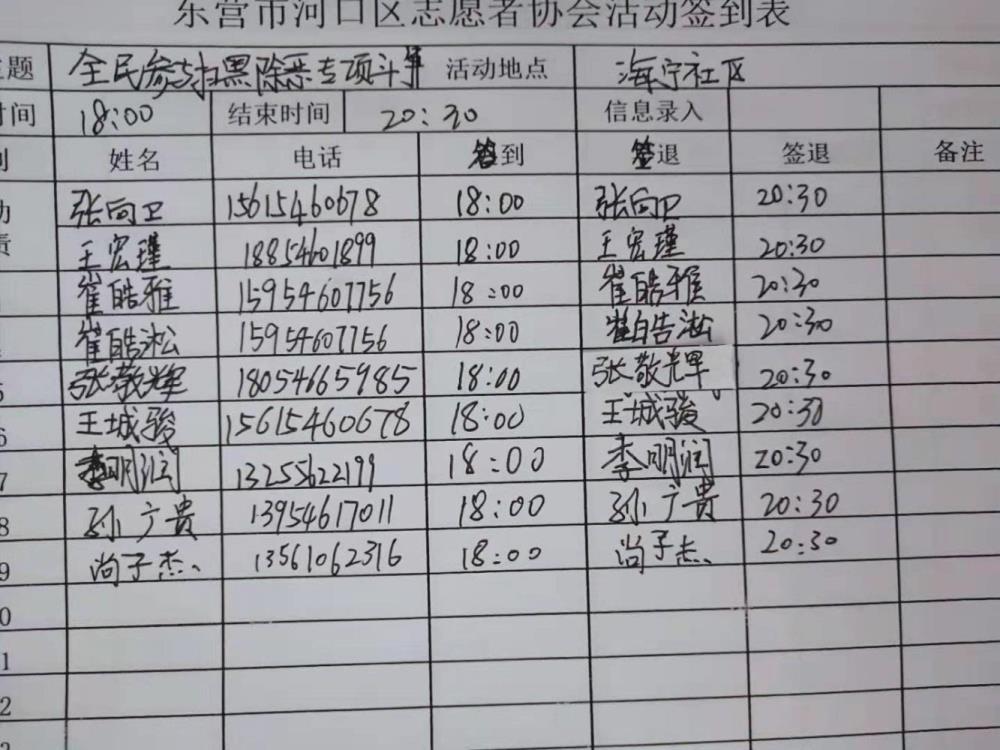 东营市河口区志愿者协会活动签到表
主题 全民参与扫黑除恶专项斗争 活动地点 海宁社区
时间 18:00 结束时间 20:30 信息录入
别 姓名 电话 签到 签退 签退 备注
张向卫 15615460678 18:00 张向卫 20:30
责 王宏瑾 18854601899 18:00 王宏瑾 20:30
崔皓雅 15954607756 18:00 崔皓雅 20:30
崔皓淞 15954607756 18:00 崔皓淞 20:30
5 张敬辉 18054665985 18:00 张敬辉 20:30
6 王城骏 15615460678 18:00 王城骏 20:30
7 李明润 13255622199 18:00 李明润 20:30
8 孙广贵 13954617011 18:00 孙广贵 20:30
9 尚子杰 13561062316 18:00 尚子杰 20:30
0
1
2